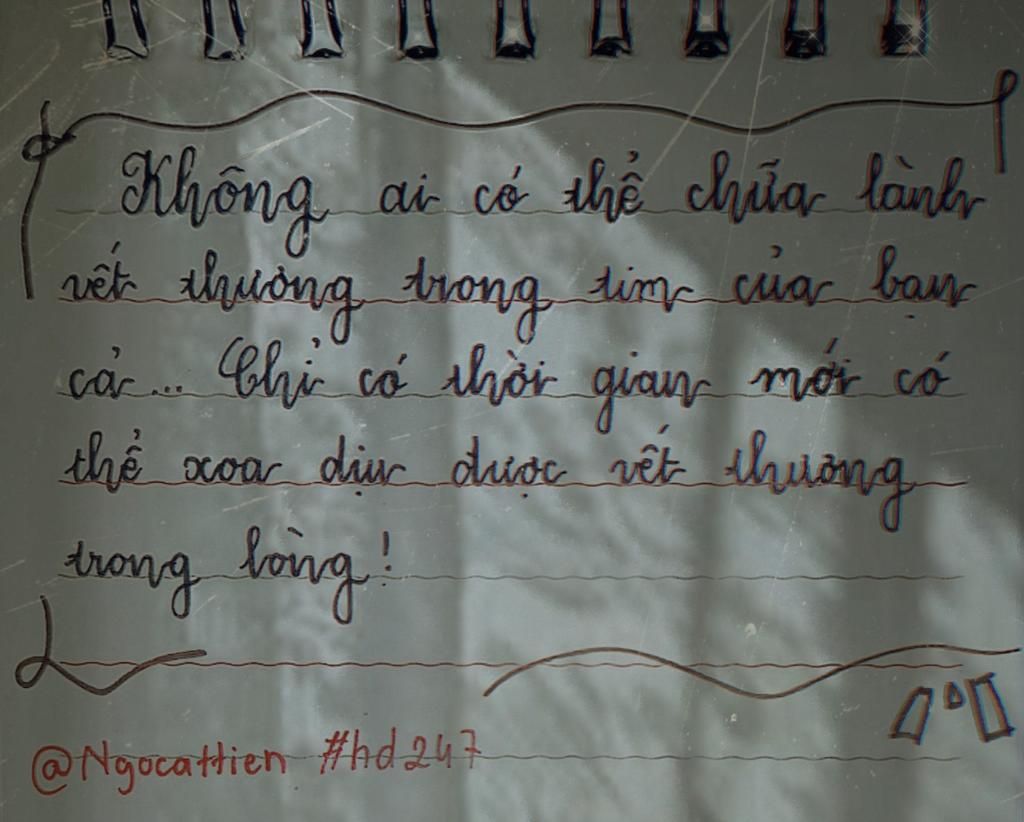 Không ai có thể chữa lành
vết thương trong tim của bạn
cả... Chỉ có thời gian mới có
thể xoa dịu được vết thương
trong lòng!
@Ngocattien #hd247